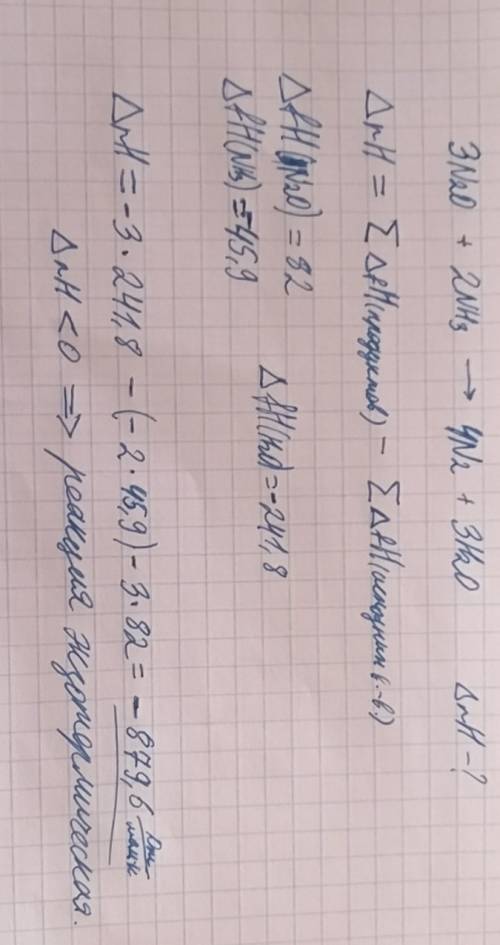 3N₂O + 2NH₃ → 4N₂ + 3H₂O   ΔrH - ?
ΔrH = Σ ΔfH(продуктов) - Σ ΔfH(исходных в-в)
ΔfH(N₂O) = 82
ΔfH(NH₃) = -45,9   ΔfH(H₂O) = -241,8
ΔrH = -3·241,8 - (-2·45,9) - 3·82 = -879,6 Дж/моль
ΔrH < 0 ⇒ реакция экзотермическая.